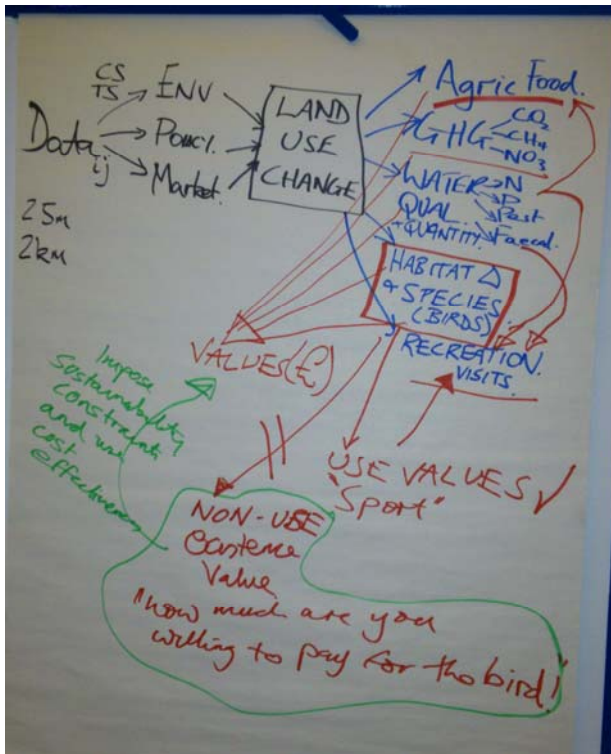 CS
TS
ENV
LAND
USE
CHANGE
Data
ij
Policy.
Market.
25m
2km
Agric Food.
GHG
CO2
CH4
NO3
WATER N
QUAL. P
+ QUANTITY. Pest
Faecal.
HABITAT Δ
& SPECIES
(BIRDS)
RECREATION.
VISITS.
VALUES (£)
Impose
sustainability
constraints
and use
cost
effectiveness
USE VALUES ✓
"Sport"
NON-USE
Existence
Value
"how much are you
willing to pay for the bird!"